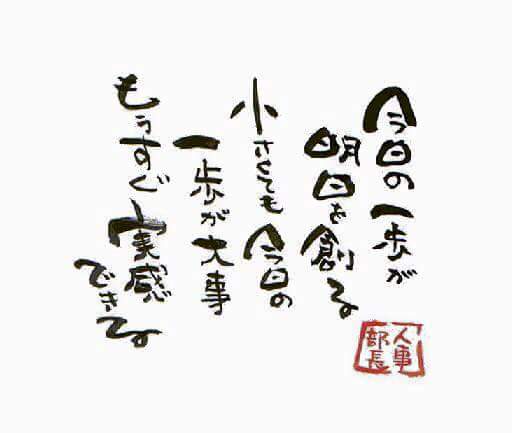 今日の一歩が
明日を創る
小さくても今日の
一歩が大事
もうすぐ実感
できる
人事
部長